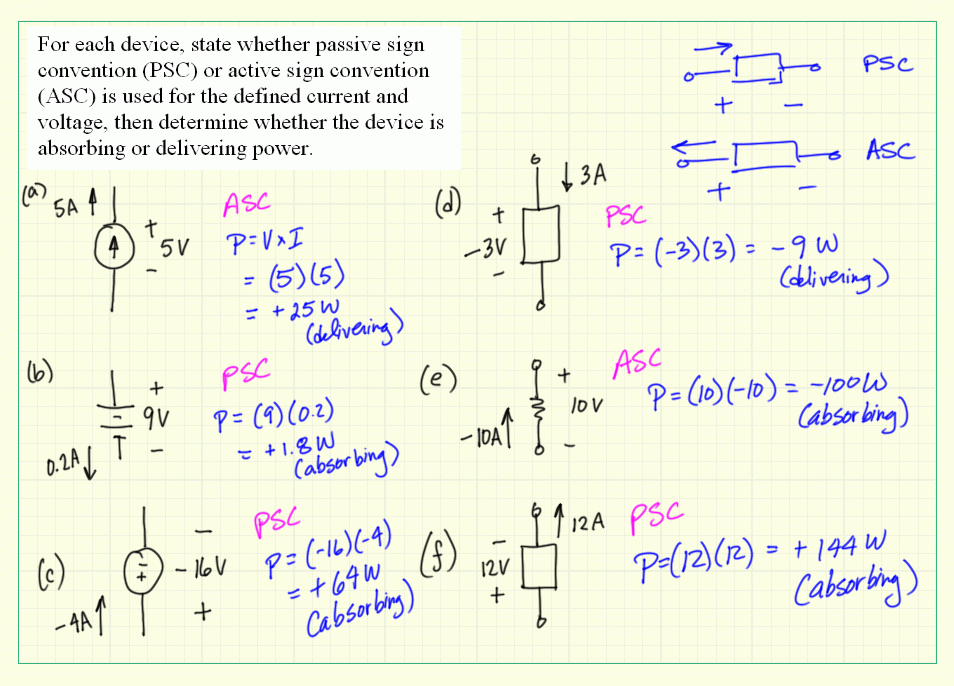 For each device, state whether passive sign
convention (PSC) or active sign convention
(ASC) is used for the defined current and
voltage, then determine whether the device is
absorbing or delivering power.
PSC
+ −
ASC
+ −
(a)
5A
+
5V
−
ASC
P=V×I
= (5)(5)
= +25W
(delivering)
(b)
+
−
9V
0.2A
−
PSC
P= (9)(0.2)
= +1.8W
(absorbing)
(c)
−
+
−
-16V
+
-4A
PSC
P= (-16)(-4)
= +64W
(absorbing)
(d)
3A
+
-3V
−
PSC
P= (-3)(3) = -9 W
(delivering)
(e)
+
10V
-10A
−
ASC
P=(10)(-10) = -100W
(absorbing)
(f)
12A
−
12V
+
PSC
P=(12)(12) = +144W
(absorbing)